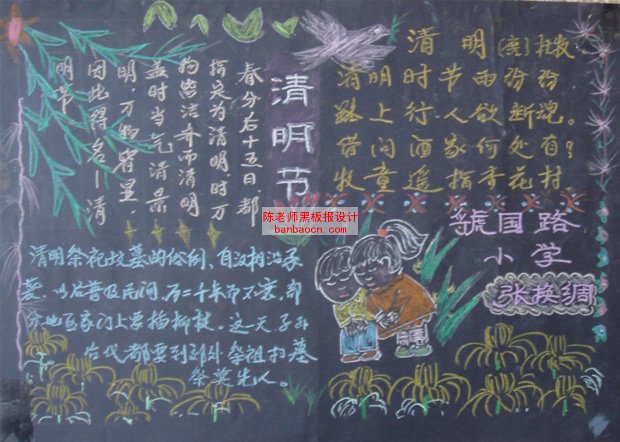 清明节
春分后十五日,都
指定为清明,时万
物皆洁齐而清明
盖时当气清景
明,万物皆显,
因此得名—清
明节
清 明 [唐]杜牧
清明时节雨纷纷,
路上行人欲断魂。
借问酒家何处有?
牧童遥指杏花村
陈老师黑板报设计
banbaocn.com
虢国路
小学
张换绸
清明祭祀坟墓的俗例,自汉相沿承
袭,以后普及民间,历二千年而不衰,部
分地区家门上要插柳枝。这一天子孙
后代都要到郊外祭祖扫墓
祭奠先人。